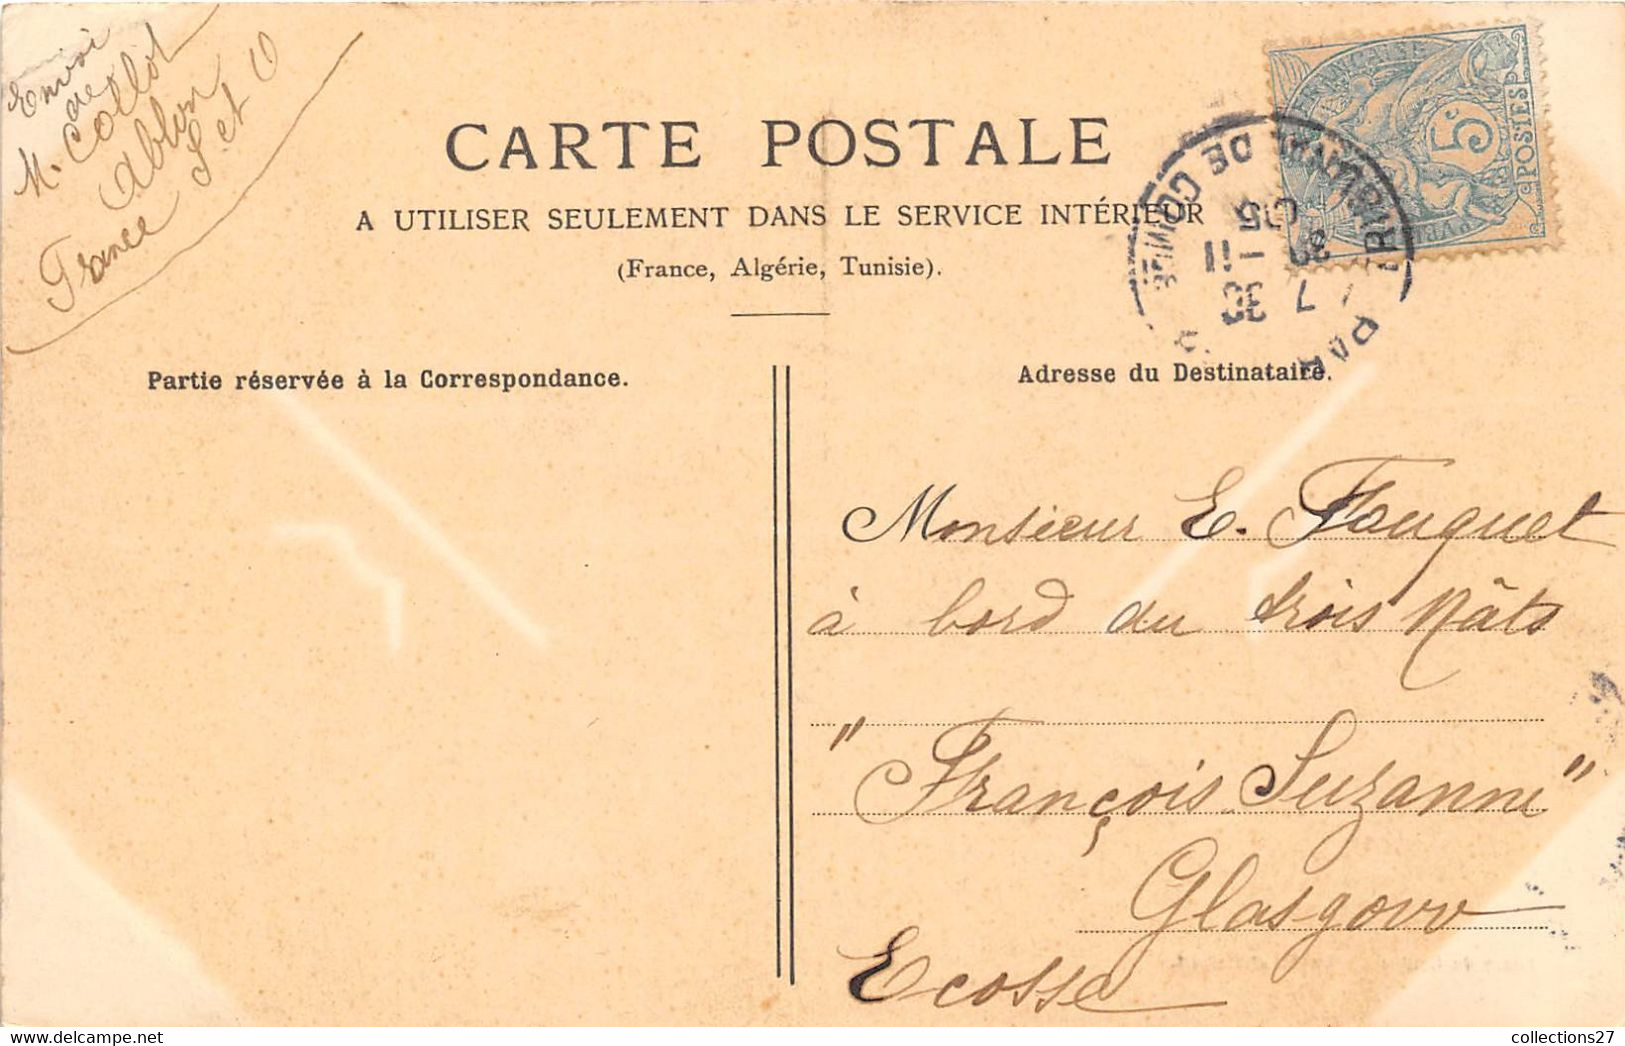 Envoi
de
M. Collot
Ablon
S. et O
France
CARTE POSTALE
A UTILISER SEULEMENT DANS LE SERVICE INTÉRIEUR
(France, Algérie, Tunisie).
5c
POSTES
7 30
05
Partie réservée à la Correspondance.
Adresse du Destinataire.
Monsieur E. Fouquet
à bord du trois Mâts
"François Suzanne"
Glasgow
Ecosse
collections27